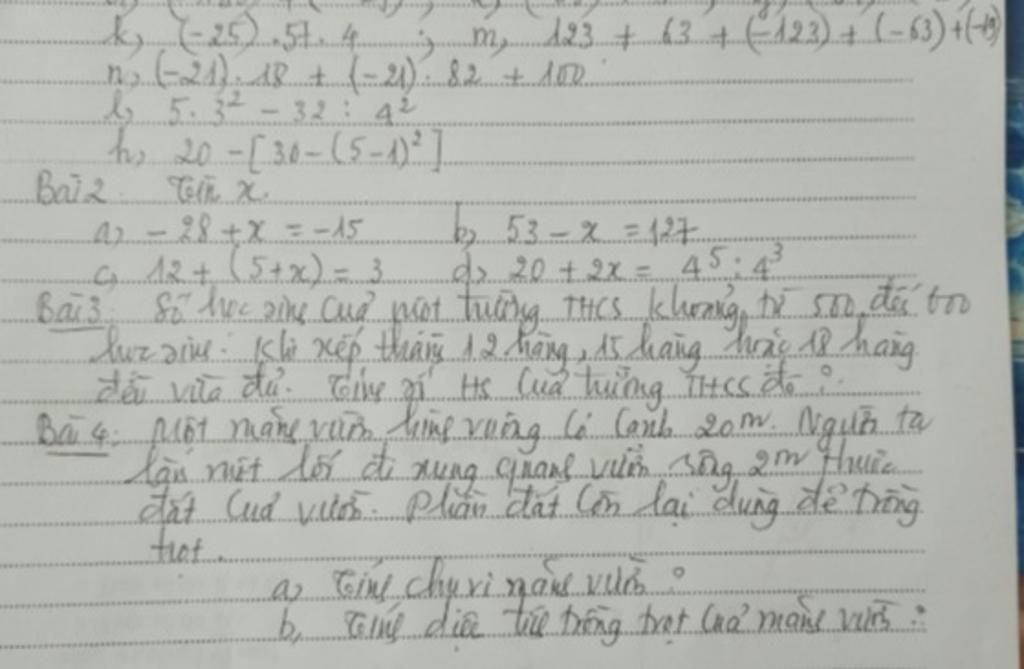 k, (-25).57.4 ; m, 123 + 63 + (-123) + (-63) +
n, (-21).18 + (-21).82 + 100
l, 5.3² - 32 : 4²
h, 20 - [30 - (5-1)²]
Bài 2 Tìm x.
a, -28 + x = -15 b, 53 - x = 127
c, 12 + (5+x) = 3 d, 20 + 2x = 4⁵ : 4³
Bài 3 Số học sinh của một trường THCS khoảng từ 500 đến 600
học sinh. Khi xếp thành 12 hàng, 15 hàng hoặc 18 hàng
đều vừa đủ. Tính số HS của trường THCS đó?
Bài 4: Một mảnh vườn hình vuông có cạnh 20m. Người ta
làm một lối đi xung quanh vườn rộng 2m thuộc
đất của vườn. Phần đất còn lại dùng để trồng
trọt.
a, Tính chu vi mảnh vườn?
b, Tính diện tích trồng trọt của mảnh vườn?